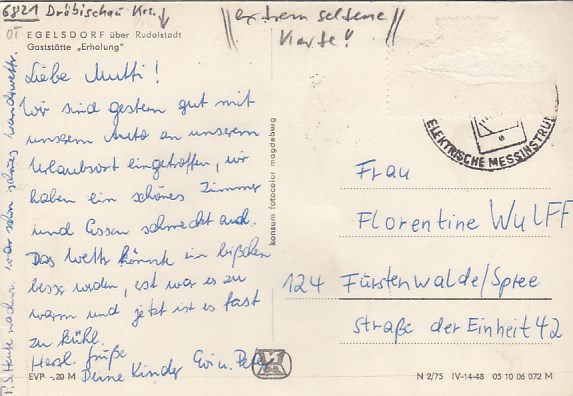 6821 Dröbischau Krs.
"extrem seltene
Karte"!
OT EGELSDORF über Rudolstadt
Gaststätte „Erholung"
Liebe Mutti!
Wir sind gestern gut mit
unserem Auto an unserem
Urlaubsort eingetroffen, wir
haben ein schönes Zimmer
und Essen schmeckt auch.
Das Wetter könnte ein bißchen
besser werden, erst war es zu
warm und jetzt ist es fast
zu kühl.
Herzl. Grüße
Deine Kinder Evi u. Peter
P.S. Heute nachm. war schon schönes Wanderwettr.
EVP -,20 M
konsum fotocolor magdeburg
ELEKTRISCHE MESSINSTRU
Frau
Florentine Wulff
124 Fürstenwalde/Spree
Straße der Einheit 42
N 2/75 IV-14-48 05 10 06 072 M